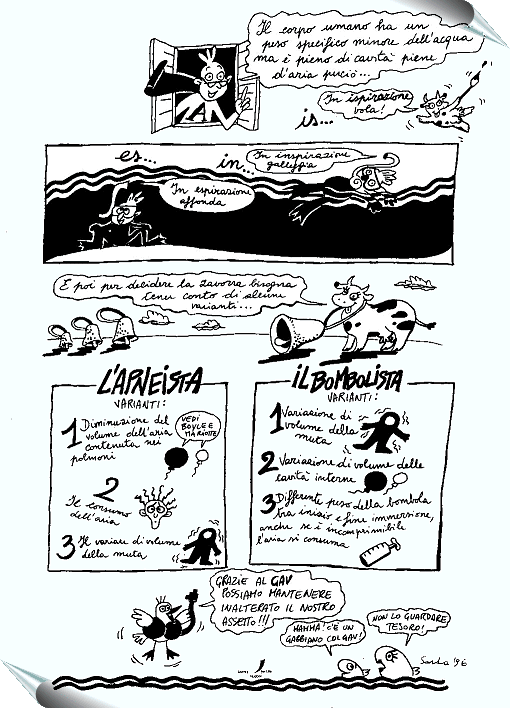 Il corpo umano ha un
peso specifico minore dell'acqua
ma è pieno di cavità piene
d'aria perciò...
In ispirazione
vola!
is...
es...
in...
In inspirazione
galleggia
In espirazione
affonda
E poi per decidere la zavorra bisogna
tener conto di alcune
varianti...
L'APNEISTA
VARIANTI:
1 Diminuzione del
volume dell'aria
contenuta nei
polmoni
VEDI
BOYLE E
MARIOTTE
2
Il consumo
dell'aria
3 Il variare di volume
della muta
IL BOMBOLISTA
VARIANTI:
1 Variazione di
volume della
muta
2 Variazione di volume delle
cavità interne
3 Differente peso della bombola
tra inizio e fine immersione,
anche se è incomprimibile
l'aria si consuma
GRAZIE AL GAV
POSSIAMO MANTENERE
INALTERATO IL NOSTRO
ASSETTO!!!
MAMMA! C'È UN
GABBIANO COL GAV!
NON LO GUARDARE
TESORO!
'96